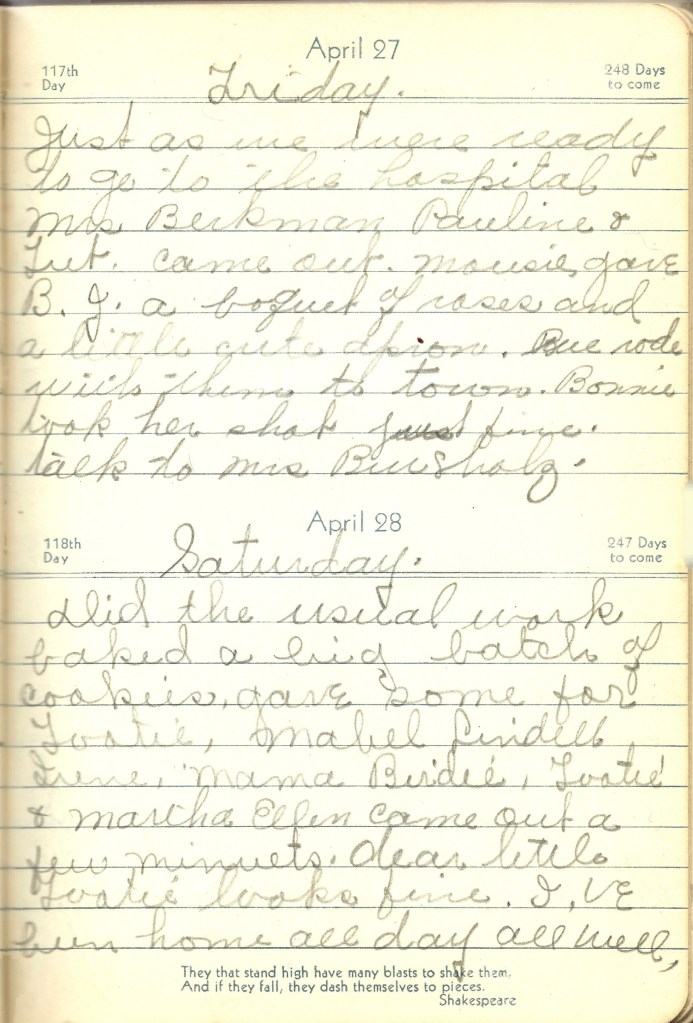 April 27
117th Day
248 Days to come
Friday.
Just as we were ready
to go to the hospital
Mrs Berkman Pauline &
Tut. came out. Mousie gave
B. J. a boquet of roses and
a little cute apron. Bue rode
with them to town. Bonnie
took her shot just fine.
talk to Mrs
April 28
118th Day
247 Days to come
Saturday.
Did the usual work
baked a big batch of
cookies, gave some for
Tootie, Mabel Lindell,
Irene, Mama Birdie, Tootie
& Martha Ellen came out a
few minuets. dear little
Tootie looks fine. I,VE
been home all day all well,
They that stand high have many blasts to shake them,
And if they fall, they dash themselves to pieces.
Shakespeare